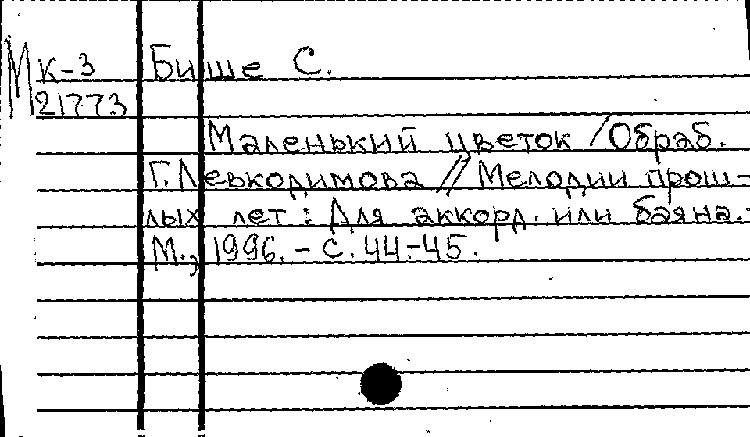 М К-3 Бише С.
21773
Маленький цветок / Обраб.
Г. Левкодимова // Мелодии прош-
лых лет: Для аккорд. или баяна.-
М., 1996. - С. 44-45.